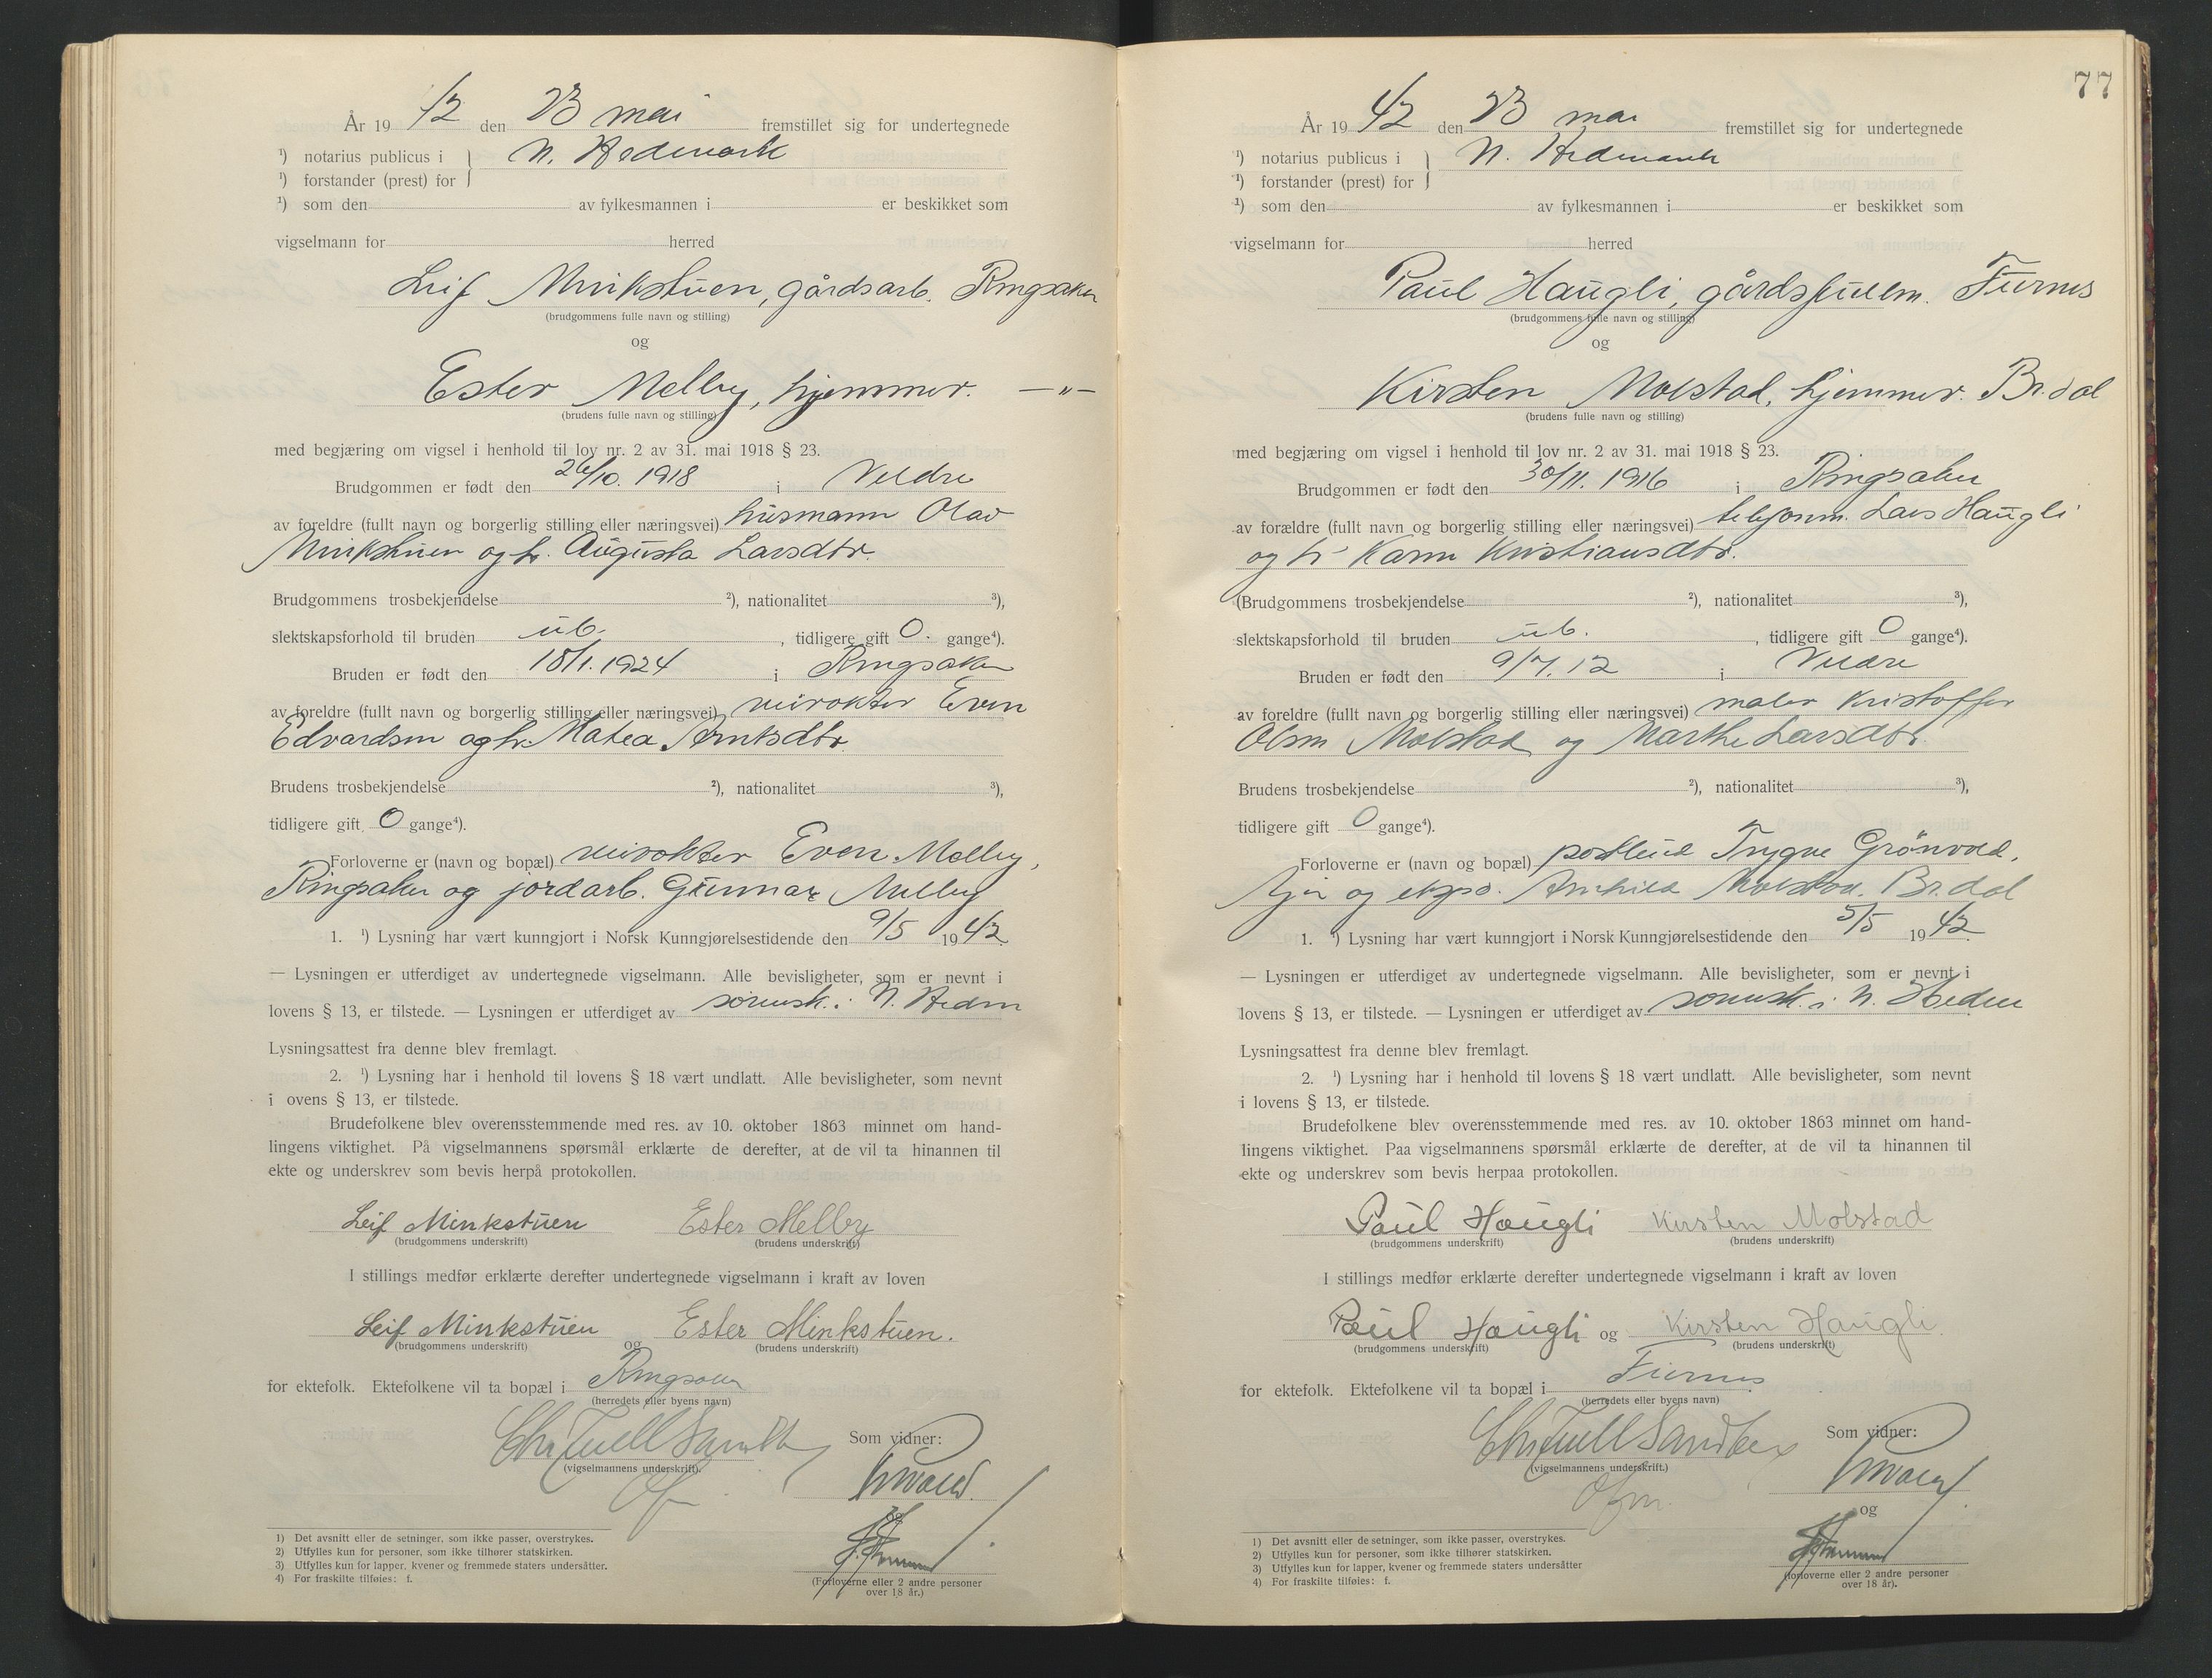 År 19 42 den 23 mai fremstillet sig for undertegnede
¹) notarius publicus i } N. Hedmark
¹) forstander (prest) for
¹) som den av fylkesmannen i er beskikket som
vigselmann for herred
Leif Minkstuen, gårdsarb. Ringsaker
(brudgommens fulle navn og stilling)
og
Ester Melby, hjemmev. —"—
(brudens fulle navn og stilling)
med begjæring om vigsel i henhold til lov nr. 2 av 31. mai 1918 § 23.
Brudgommen er født den 26/10. 1918 i Veldre
av foreldre (fullt navn og borgerlig stilling eller næringsvei) husmann Olav
Minkstuen og h. Augusta Larsdtr.
Brudgommens trosbekjendelse ²), nationalitet ³),
slektskapsforhold til bruden ub. , tidligere gift 0. gange⁴).
Bruden er født den 18/1. 1924 i Ringsaker
av foreldre (fullt navn og borgerlig stilling eller næringsvei) veivokter Even
Edvardsen og h. Matea Arntsdtr.
Brudens trosbekjendelse ²), nationalitet ³),
tidligere gift 0 gange⁴).
Forloverne er (navn og bopæl) veivokter Even Melby,
Ringsaker og jordarb. Gunnar Melby
1. ¹) Lysning har vært kunngjort i Norsk Kunngjørelsestidende den 9/5 1942
— Lysningen er utferdiget av undertegnede vigselmann. Alle bevisligheter, som er nevnt i
lovens § 13, er tilstede. — Lysningen er utferdiget av sorensk. i N. Hedm
Lysningsattest fra denne blev fremlagt.
2. ¹) Lysning har i henhold til lovens § 18 vært undlatt. Alle bevisligheter, som nevnt
i ovens § 13, er tilstede.
Brudefolkene blev overensstemmende med res. av 10. oktober 1863 minnet om hand-
lingens viktighet. På vigselmannens spørsmål erklærte de derefter, at de vil ta hinannen til
ekte og underskrev som bevis herpå protokollen.
Leif Minkstuen Ester Melby
(brudgommens underskrift) (brudens underskrift)
I stillings medfør erklærte derefter undertegnede vigselmann i kraft av loven
Leif Minkstuen og Ester Minkstuen.
(brudgommens underskrift) (brudens underskrift)
for ektefolk. Ektefolkene vil ta bopæl i Ringsaker
(herredets eller byens navn)
Som vidner:
(vigselmannens underskrift).
og
1) Det avsnitt eller de setninger, som ikke passer, overstrykes.
2) Utfylles kun for personer, som ikke tilhører statskirken.
3) Utfylles kun for lapper, kvener og fremmede staters undersåtter.
4) For fraskilte tilføies: f.
(Forloverne eller 2 andre personer
over 18 år.)
77
År 19 42 den 23 mai fremstillet sig for undertegnede
¹) notarius publicus i } N. Hedmark
¹) forstander (prest) for
¹) som den av fylkesmannen i er beskikket som
vigselmann for herred
Paul Haugli, gårdsfullm. Furnes
(brudgommens fulle navn og stilling)
og
Kirsten Molstad, hjemmev. Br.dal
(brudens fulle navn og stilling)
med begjæring om vigsel i henhold til lov nr. 2 av 31. mai 1918 § 23.
Brudgommen er født den 30/11. 1916 i Ringsaker
av forældre (fullt navn og borgerlig stilling eller næringsvei) Lars Haugli
og h. Karen Kristiansdtr.
(Brudgommens trosbekjendelse ²), nationalitet ³),
slektskapsforhold til bruden ub. , tidligere gift 0 gange⁴).
Bruden er født den 9/7. 12 i Veldre
av foreldre (fullt navn og borgerlig stilling eller næringsvei) maler Kristoffer
Olsen Molstad og Marthe Larsdtr.
Brudens trosbekjendelse ²), nationalitet ³),
tidligere gift 0 gange⁴).
Forloverne er (navn og bopæl) postbud Trygve Grönvold,
og Molstad. Br.dal
1. ¹) Lysning har vært kunngjort i Norsk Kunngjørelsestidende den 5/5 1942
— Lysningen er utferdiget av undertegnede vigselmann. Alle bevisligheter, som er nevnt i
lovens § 13, er tilstede. — Lysningen er utferdiget av sorensk. i N. Hedm
Lysningsattest fra denne blev fremlagt.
2. ¹) Lysning har i henhold til lovens § 18 vært undlatt. Alle bevisligheter, som nevnt
i lovens § 13, er tilstede.
Brudefolkene blev overensstemmende med res. av 10. oktober 1863 minnet om hand-
lingens viktighet. Paa vigselmannens spørsmål erklærte de derefter, at de vil ta hinannen til
ekte og underskrev som bevis herpaa protokollen.
Paul Haugli Kirsten Molstad
(brudgommens underskrift) (brudens underskrift)
I stillings medfør erklærte derefter undertegnede vigselmann i kraft av loven
Paul Haugli og Kirsten Haugli
(brudgommens underskrift) (brudens underskrift)
for ektefolk. Ektefolkene vil ta bopæl i Furnes
(herredets eller byens navn)
Som vidner:
(vigselmannens underskrift.)
og
1) Det avsnitt eller de setninger, som ikke passer, overstrykes.
2) Utfylles kun for personer, som ikke tilhører statskirken.
3) Utfylles kun for lapper, kvener og fremmede staters undersåtter
4) For fraskilte tilføies: f.
(forloverne eller 2 andre personer
over 18 år).